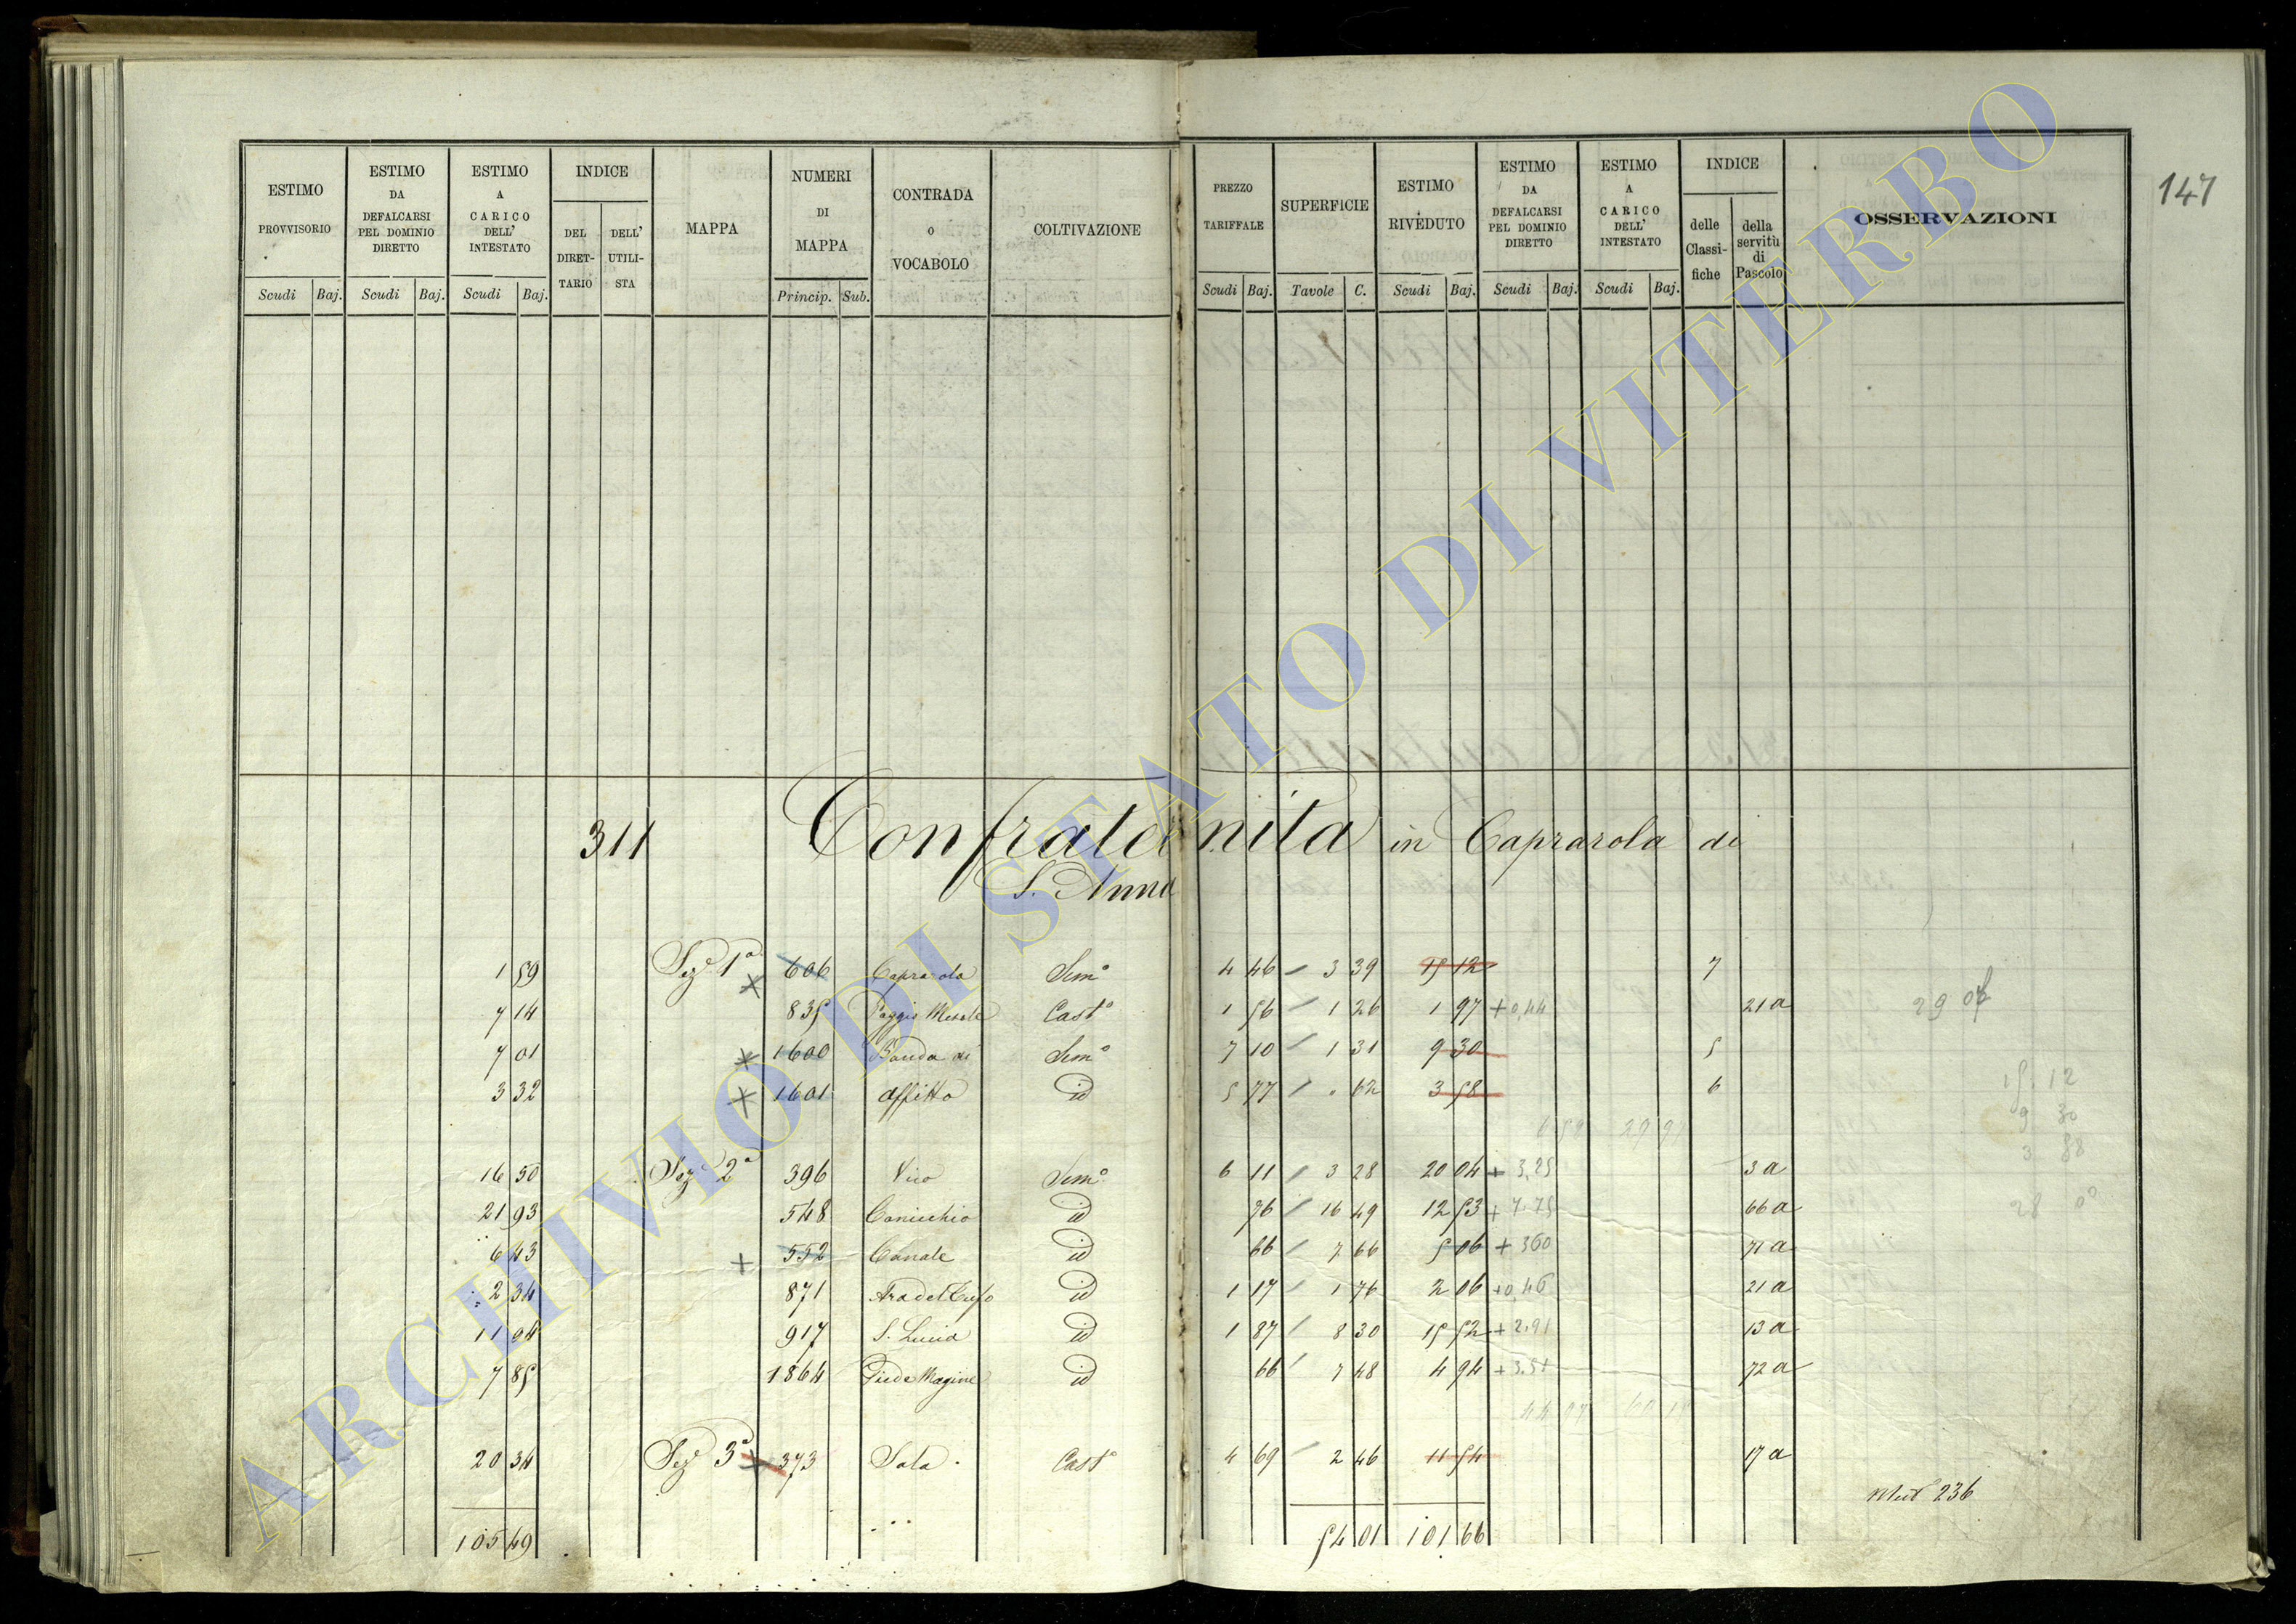 147
ESTIMO PROVVISORIO Scudi Baj.
ESTIMO DA DEFALCARSI PEL DOMINIO DIRETTO Scudi Baj.
ESTIMO A CARICO DELL' INTESTATO Scudi Baj.
INDICE DEL DIRET-TARIO DELL' UTILI-STA
MAPPA
NUMERI DI MAPPA Princip. Sub.
CONTRADA o VOCABOLO
COLTIVAZIONE
PREZZO TARIFFALE Scudi Baj.
SUPERFICIE Tavole C.
ESTIMO RIVEDUTO Scudi Baj.
ESTIMO DA DEFALCARSI PEL DOMINIO DIRETTO Scudi Baj.
ESTIMO A CARICO DELL' INTESTATO Scudi Baj.
INDICE delle Classi-fiche della servitù di Pascolo
OSSERVAZIONI
311 Confraternita in Caprarola di
S. Anna
1 59 Sez.e 1a 606 Sem.o 4 46 3 39 15 12 7
7 14 835 Poggio Cast.o 1 56 1 26 1 97 + 0,44 21 a
7 01 1600 Banda di Sem.o 7 10 1 31 9 30 5
3 32 1601 Affitto id 5 77 " 62 3 58 6
16 50 Sez.e 2a 396 Vico Sem.o 6 11 3 28 20 04 + 3,25 3 a
21 93 548 Conicchio id 76 16 49 12 53 + 7.75 66 a
6 43 552 Canale id 66 7 66 5 06 + 360 71 a
2 34 871 Ara del Tufo id 1 17 1 76 2 06 + 0,46 21 a
11 94 917 S. Lucia id 1 87 8 30 15 52 + 2.91 13 a
7 85 1364 id 66 7 48 4 94 + 3.51 72 a
20 34 Sez.e 3a 373 Sala Cast.o 4 69 2 46 11 54 17 a
105 49 54 01 101 66
29 07
15.12
9 30
3 58
28 00
Mut 236
ARCHIVIO DI STATO DI VITERBO